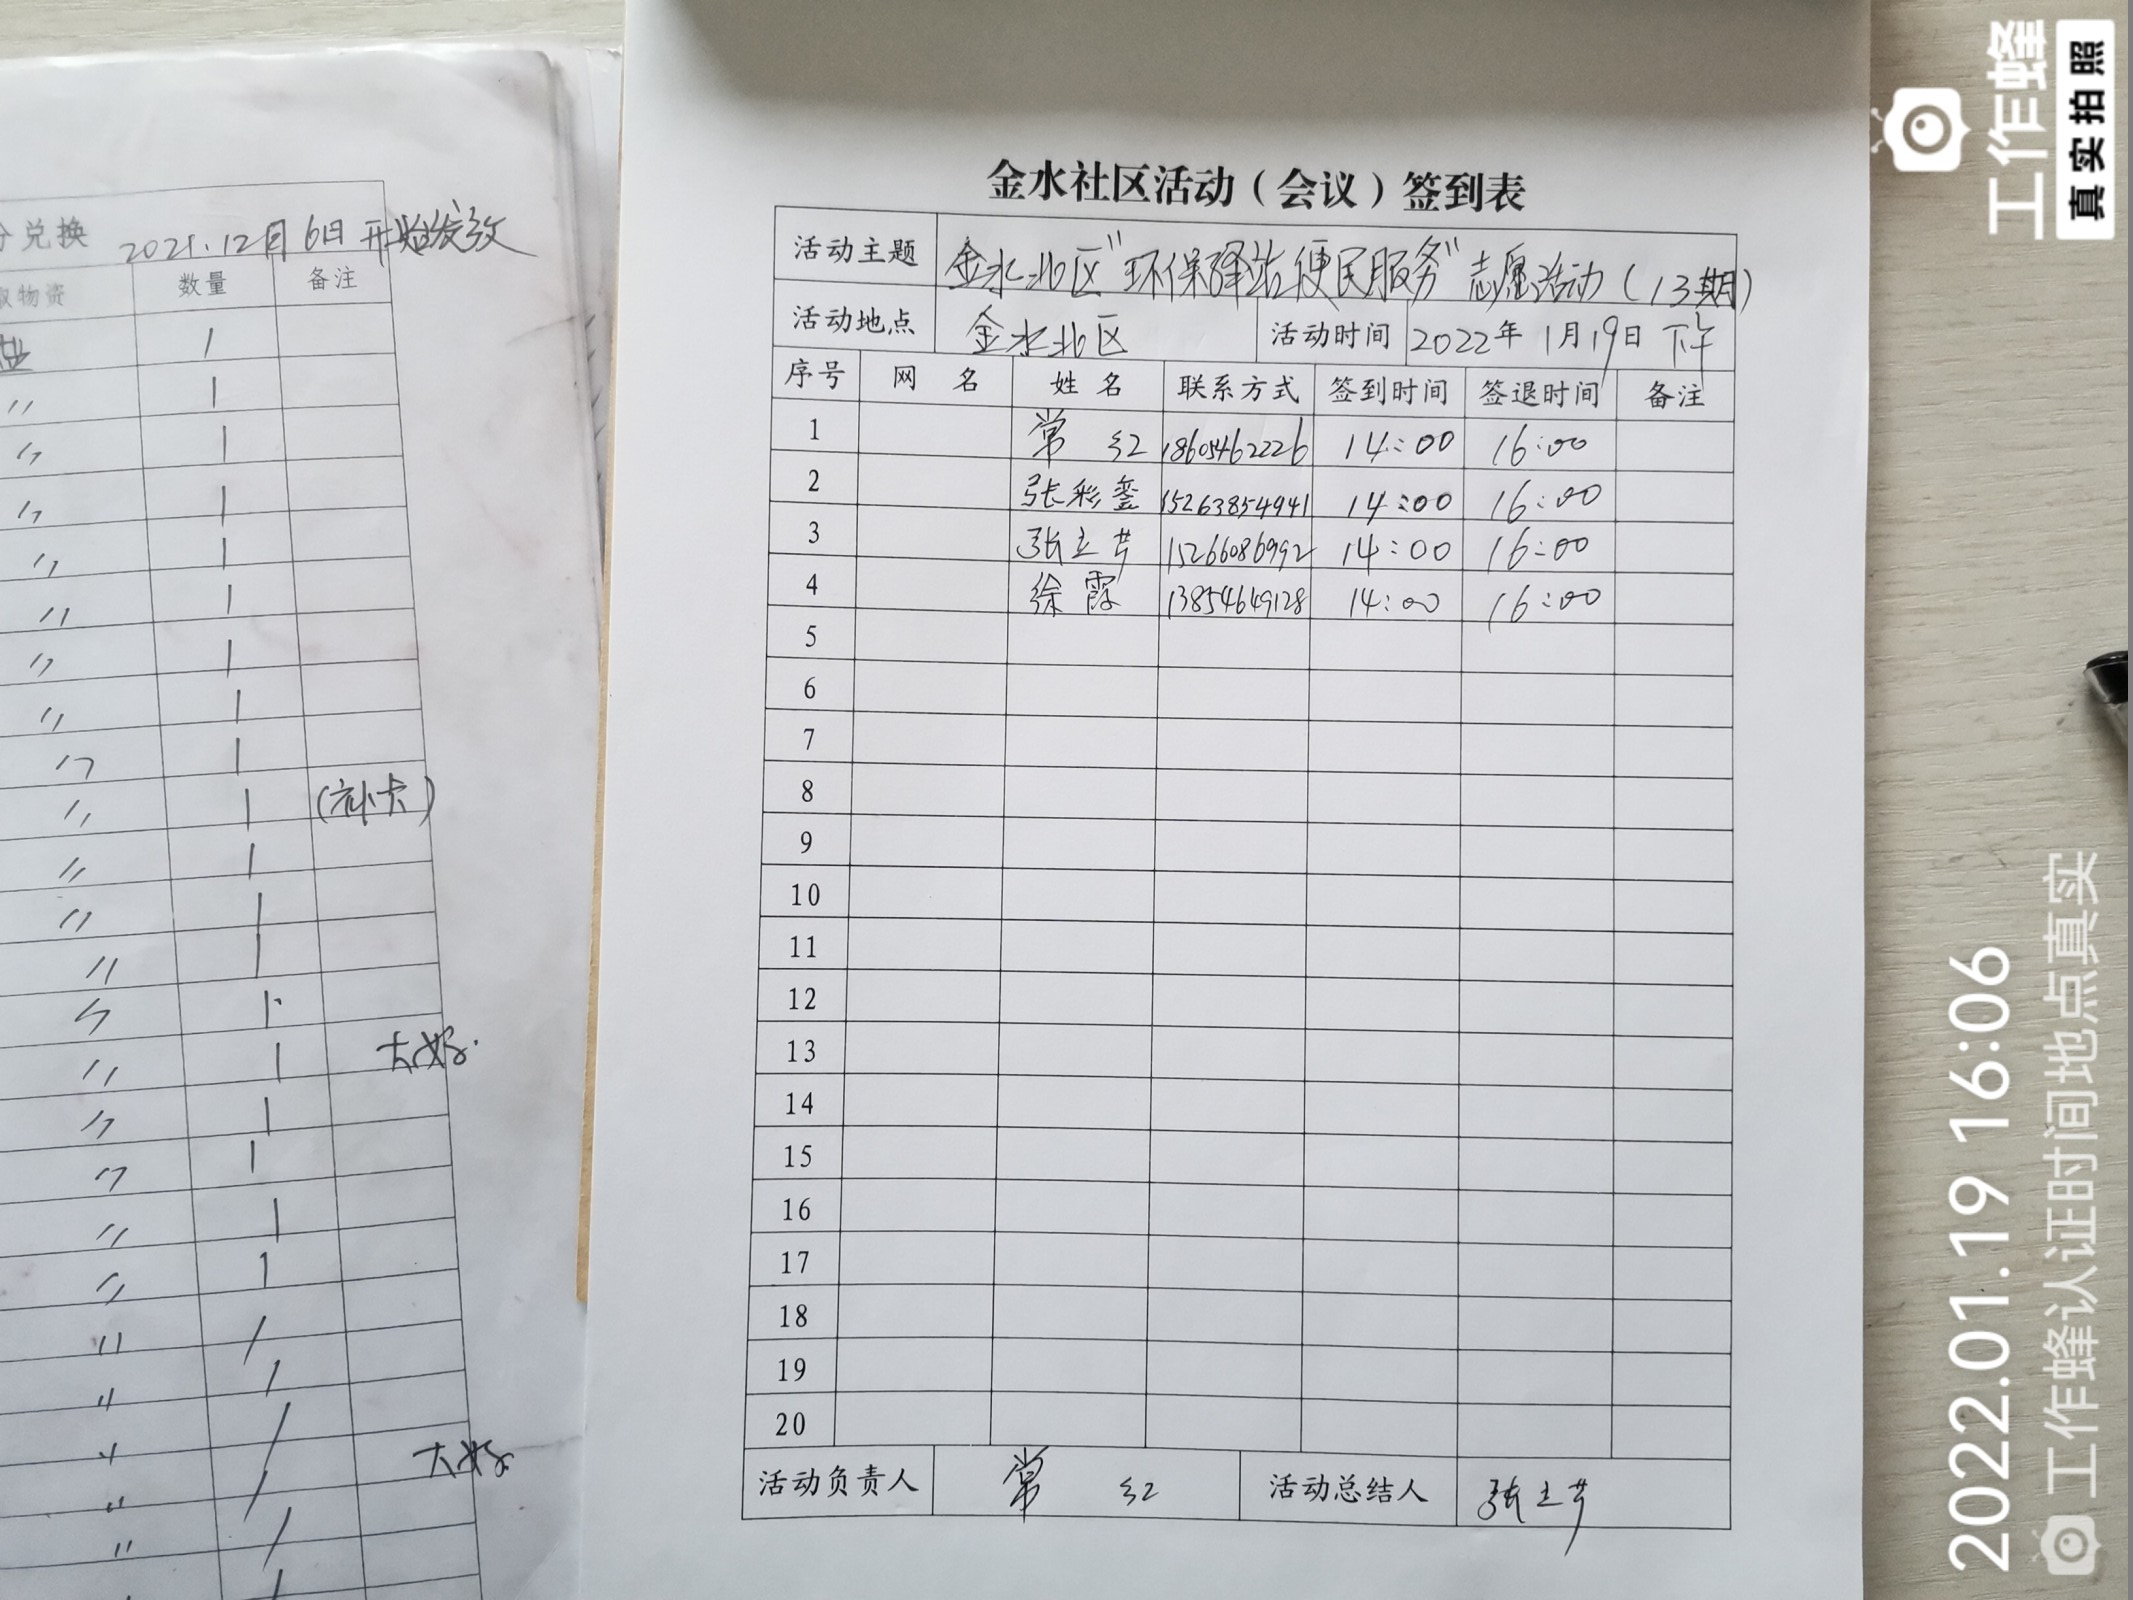 分兑换 2021.12月6日开始发放
取物资 数量 备注
1
〃 1
〃 1
〃 1
〃 1
〃 1
〃 1
〃 1
〃 1
〃 1 (补卡)
〃 1
〃 1
〃 1
〃 1
〃 1 大好.
〃 1
〃 1
〃 1
〃 1
〃 1
〃 1
〃 1
〃 1 大好
〃 1
1
金水社区活动(会议)签到表
活动主题 金水北区"环保驿站便民服务"志愿活动(13期)
活动地点 金水北区 活动时间 2022年1月19日下午
序号 网名 姓名 联系方式 签到时间 签退时间 备注
1 常红 18605462226 14:00 16:00
2 张彩銮 15263854941 14:00 16:00
3 张立芳 15266086992 14:00 16:00
4 徐霞 13854649128 14:00 16:00
5
6
7
8
9
10
11
12
13
14
15
16
17
18
19
20
活动负责人 常红 活动总结人 张立芳
工作蜂
真实拍照
2022.01.19 16:06
工作蜂认证时间地点真实